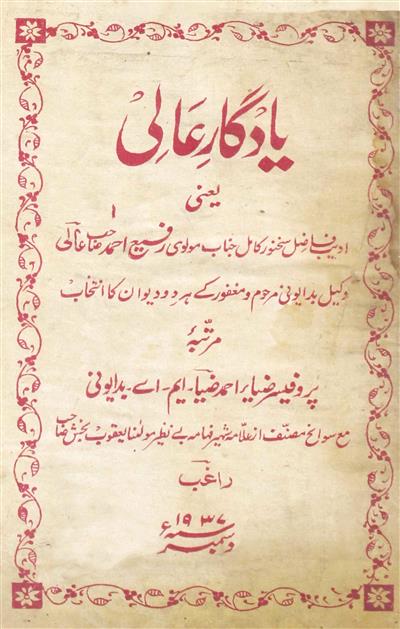 یادگارِ عالی
یعنی
ادیب فاضل سخنور کامل جناب مولوی رفیع احمد صاحب عالی
وکیل بدایونی مرحوم و مغفور کے ہر دو دیوان کا انتخاب
مرتبہٴ
پروفیسر ضیاء احمد ضیا۔ ایم۔ اے۔ بدایونی
مع سوانح مصنف از علامہ شہیر فہامہ بے نظیر مولٰنا یعقوب بخش صاحب
راغب
۱۹۳۷ء
دسمبر سنہ